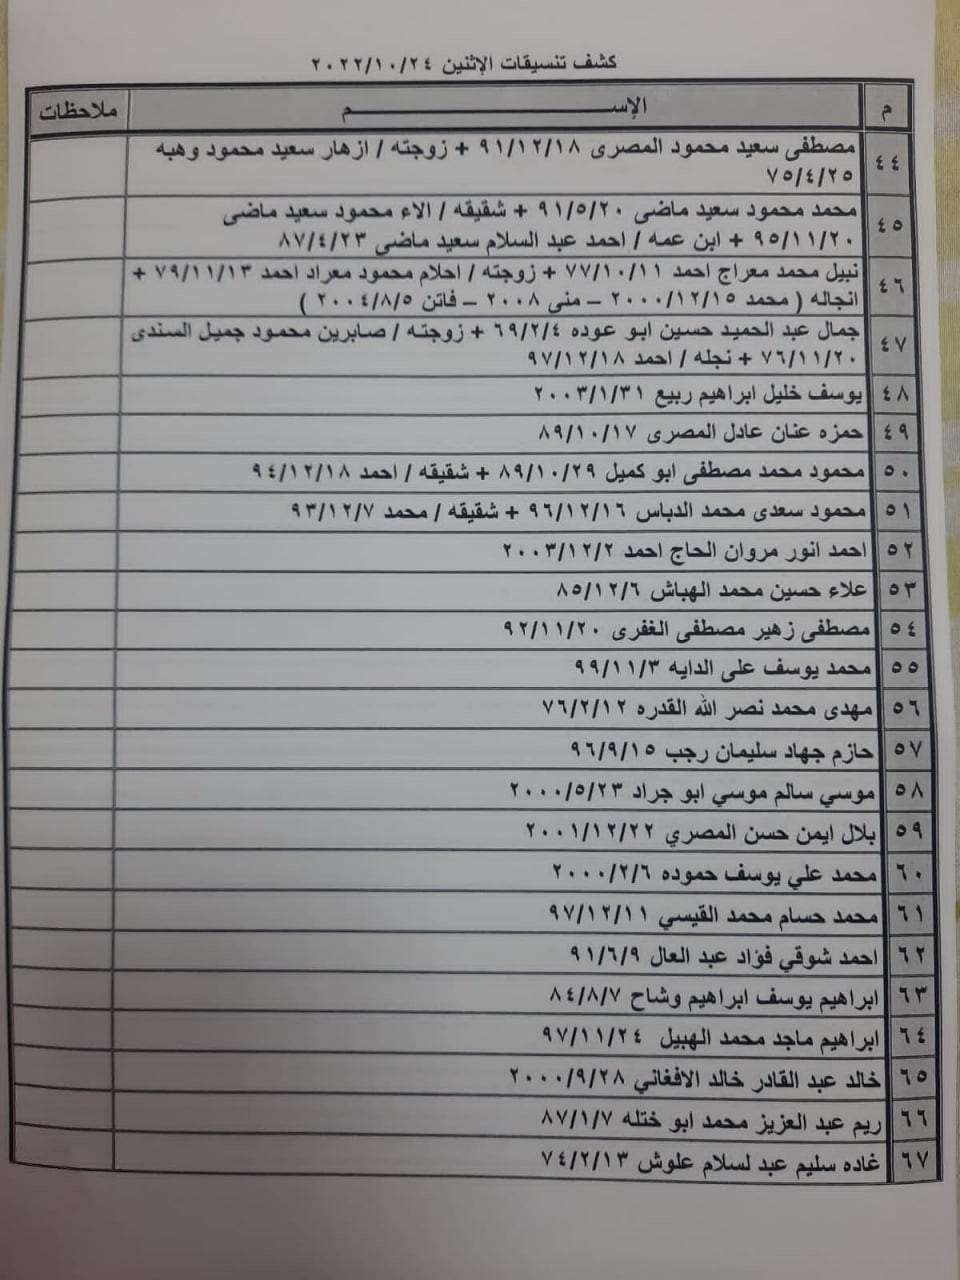 كشف تنسيقات الإثنين ٢٠٢٢/١٠/٢٤
م الإســـــــــــــم ملاحظات
٤٤ مصطفى سعيد محمود المصرى ٩١/١٢/١٨ + زوجته / ازهار سعيد محمود وهبه
٧٥/٤/٢٥
٤٥ محمد محمود سعيد ماضى ٩١/٥/٢٠ + شقيقه / الاء محمود سعيد ماضى
٩٥/١١/٢٠ + ابن عمه / احمد عبد السلام سعيد ماضى ٨٧/٤/٢٣
٤٦ نبيل محمد معراج احمد ٧٧/١٠/١١ + زوجته / احلام محمود معراد احمد ٧٩/١١/١٣ +
انجاله ( محمد ٢٠٠٠/١٢/١٥ – منى ٢٠٠٨ – فاتن ٢٠٠٤/٨/٥ )
٤٧ جمال عبد الحميد حسين ابو عوده ٦٩/٢/٤ + زوجته / صابرين محمود جميل السندى
٧٦/١١/٢٠ + نجله / احمد ٩٧/١٢/١٨
٤٨ يوسف خليل ابراهيم ربيع ٢٠٠٣/١/٣١
٤٩ حمزه عنان عادل المصرى ٨٩/١٠/١٧
٥٠ محمود محمد مصطفى ابو كميل ٨٩/١٠/٢٩ + شقيقه / احمد ٩٤/١٢/١٨
٥١ محمود سعدى محمد الدباس ٩٦/١٢/١٦ + شقيقه / محمد ٩٣/١٢/٧
٥٢ احمد انور مروان الحاج احمد ٢٠٠٣/١٢/٢
٥٣ علاء حسين محمد الهباش ٨٥/١٢/٦
٥٤ مصطفى زهير مصطفى الغفرى ٩٢/١١/٢٠
٥٥ محمد يوسف على الدايه ٩٩/١١/٣
٥٦ مهدى محمد نصر الله القدره ٧٦/٢/١٢
٥٧ حازم جهاد سليمان رجب ٩٦/٩/١٥
٥٨ موسي سالم موسي ابو جراد ٢٠٠٠/٥/٢٣
٥٩ بلال ايمن حسن المصري ٢٠٠١/١٢/٢٢
٦٠ محمد علي يوسف حموده ٢٠٠٠/٢/٦
٦١ محمد حسام محمد القيسي ٩٧/١٢/١١
٦٢ احمد شوقي فؤاد عبد العال ٩١/٦/٩
٦٣ ابراهيم يوسف ابراهيم وشاح ٨٤/٨/٧
٦٤ ابراهيم ماجد محمد الهبيل ٩٧/١١/٢٤
٦٥ خالد عبد القادر خالد الافغاني ٢٠٠٠/٩/٢٨
٦٦ ريم عبد العزيز محمد ابو ختله ٨٧/١/٧
٦٧ غاده سليم عبد لسلام علوش ٧٤/٢/١٣